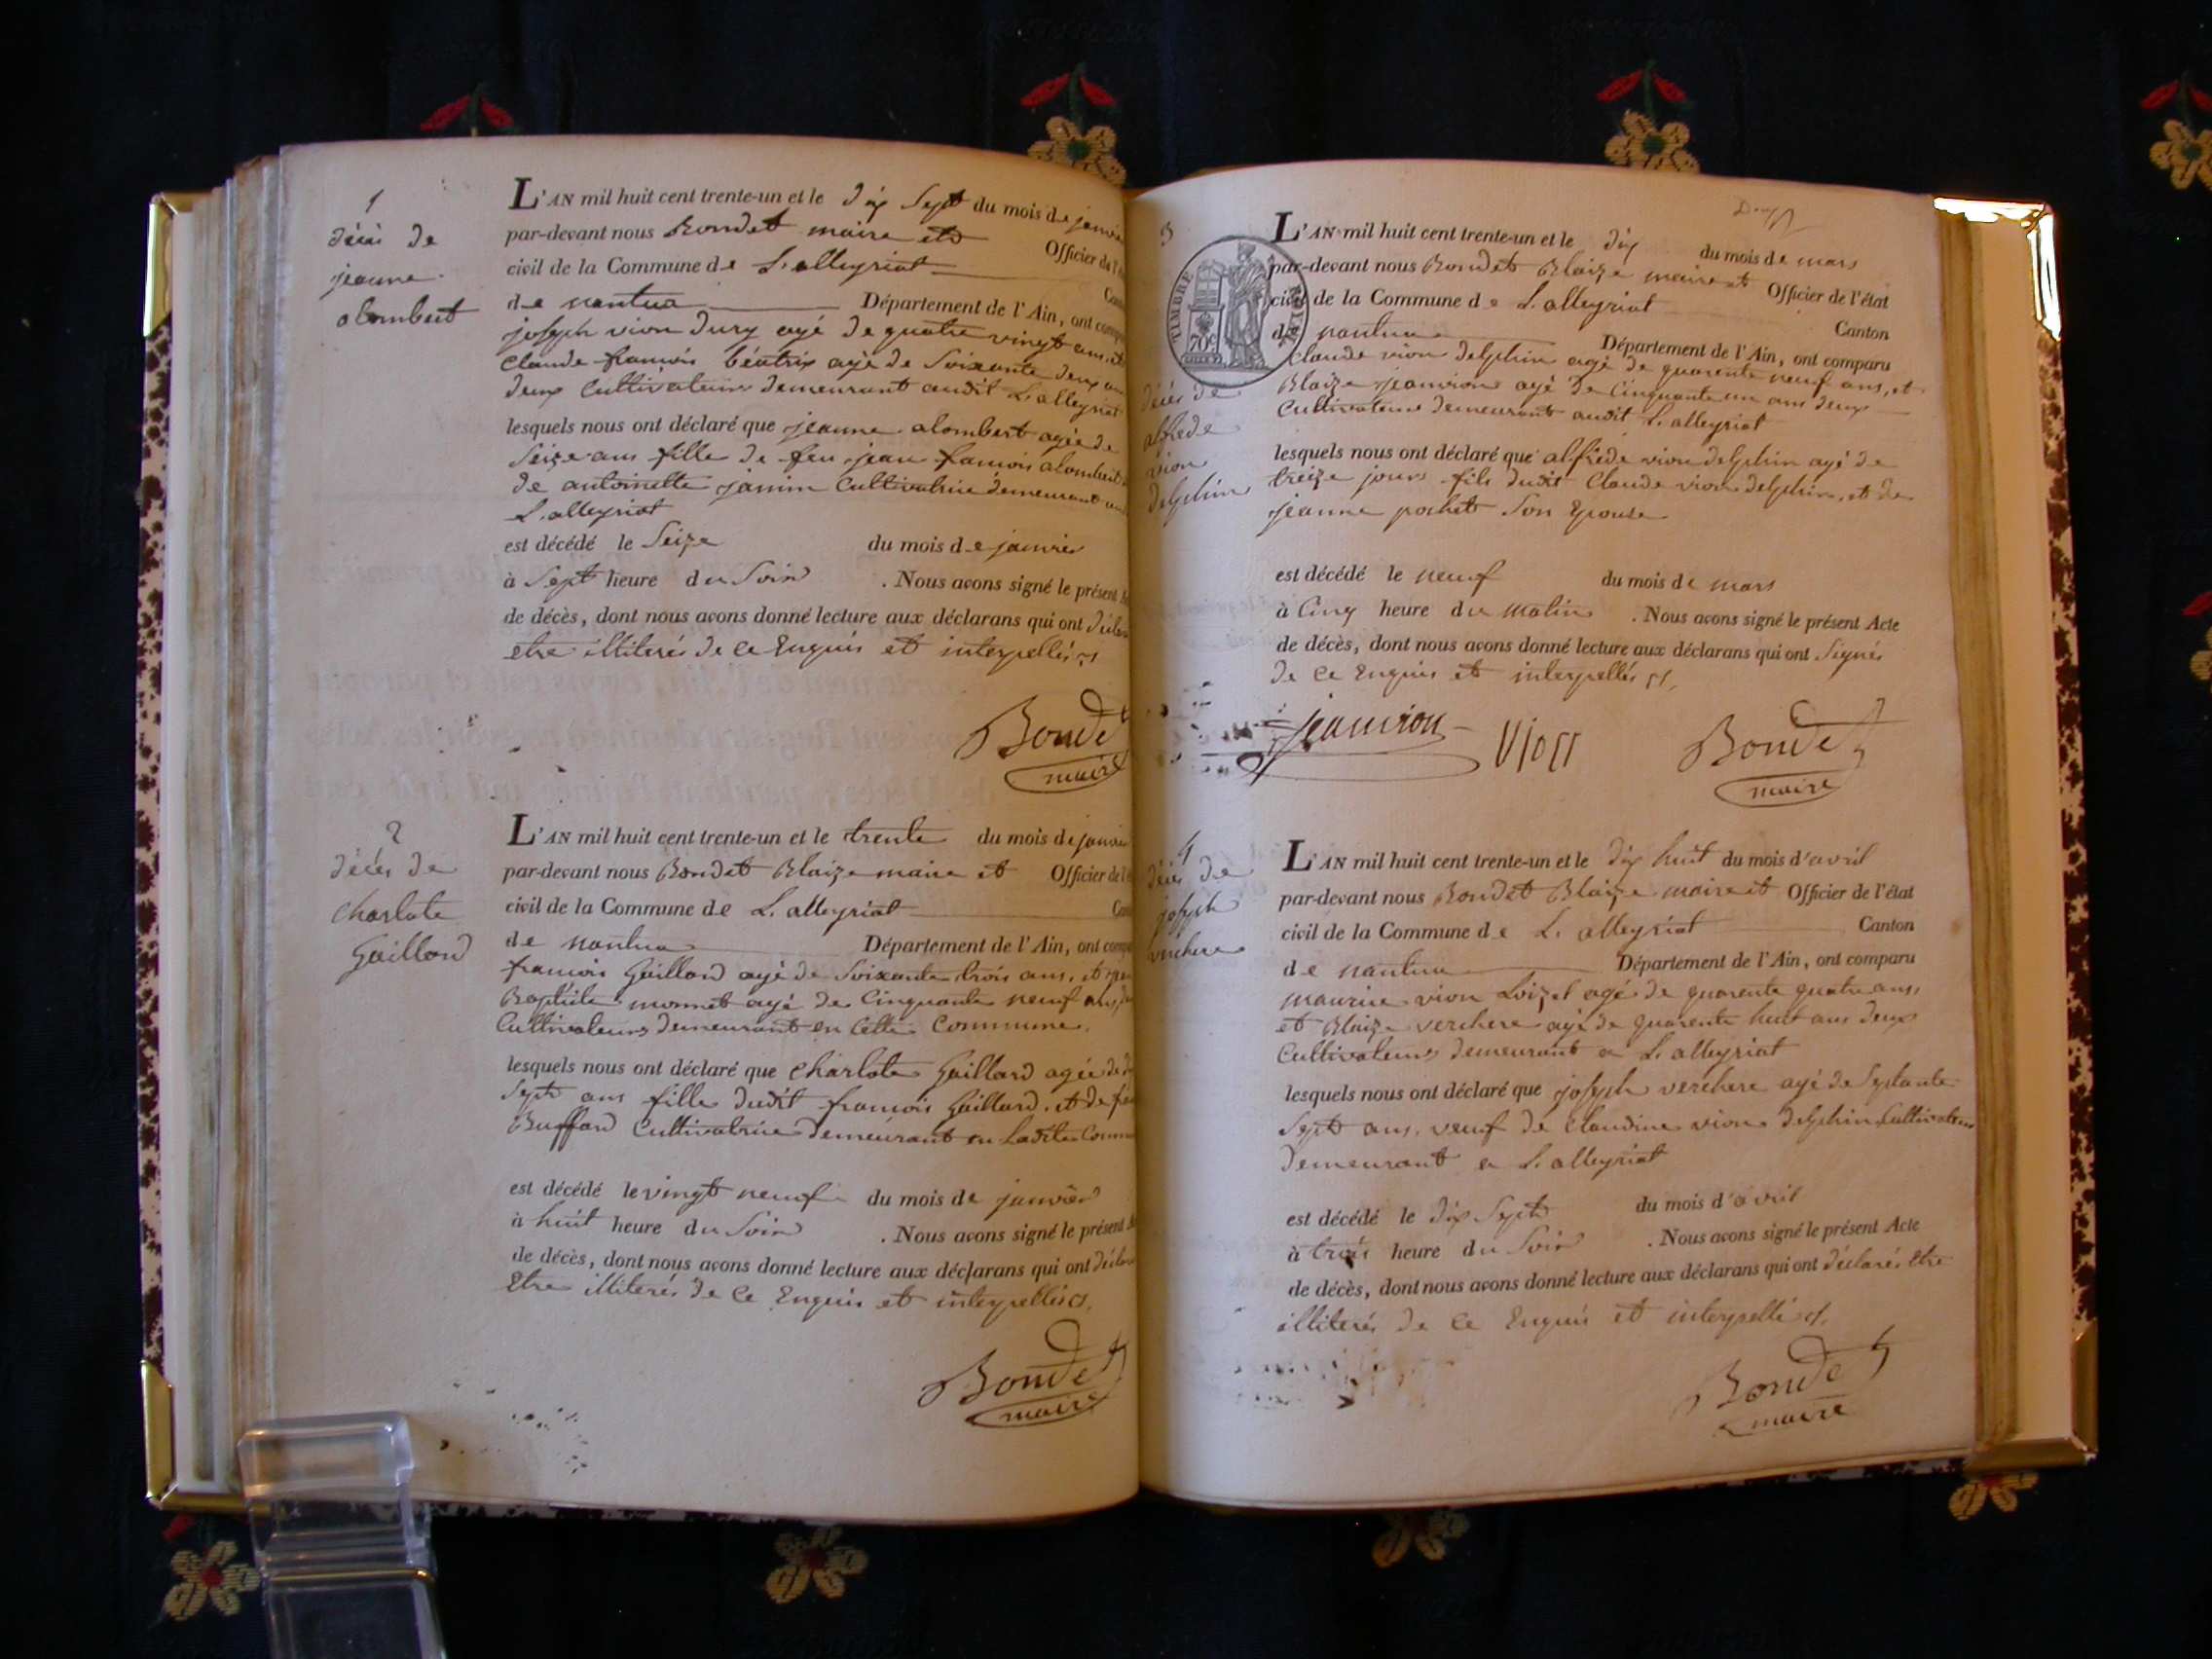 1
décès de
jeanne
alombert
L'AN mil huit cent trente-un et le dix Sept du mois de janvier
par-devant nous Bondet maire et Officier de l'
civil de la Commune de L'alleyriat
de nantua Département de l'Ain, ont
joseph vion Dury agé de quatre vingt ans, et
Claude francois béatrix agé de Soixante deux ans
deux Cultivateurs demeurant audit L'alleyriat
lesquels nous ont déclaré que jeanne alombert agée de
Seize ans fille de feu jean francois alombert
de antoinette janin Cultivatrice demeurant
L'alleyriat
est décédé le Seize du mois de janvier
à Sept heure du Soir . Nous avons signé le présent
de décès, dont nous avons donné lecture aux déclarans qui ont
etre illiterés de ce Enquis et interpellés
Bondet
maire
2
décès de
Charlote
Gaillard
L'AN mil huit cent trente-un et le trente du mois de janvier
par-devant nous Bondet Blaize maire et Officier de l'
civil de la Commune de L'alleyriat
de nantua Département de l'Ain, ont
francois Gaillard agé de Soixante trois ans, et
Baptiste monnet agé de Cinquante neuf ans,
Cultivateurs demeurant en Cette Commune.
lesquels nous ont déclaré que Charlote Gaillard agée de
Sept ans fille dudit francois Gaillard et de
Buffard Cultivatrice demeurant en Ladite
est décédé le vingt neuf du mois de janvier
à huit heure du Soir . Nous avons signé le présent
de décès, dont nous avons donné lecture aux déclarans qui ont
Etre illiterés de Ce Enquis et interpellés
Bondet
maire
3
TIMBRE ROYAL
70c
décès de
alfrede
vion
delphin
L'AN mil huit cent trente-un et le dix du mois de mars
par-devant nous Bondet Blaize maire et Officier de l'état
civil de la Commune de L'alleyriat Canton
de nantua Département de l'Ain, ont comparu
Claude vion delphin agé de quarente neuf ans, et
Blaize jeanvion agé de Cinquante un ans deux
Cultivateurs demeurant audit L'alleyriat
lesquels nous ont déclaré que alfrede vion delphin agé de
treize jours fils dudit Claude vion delphin, et de
jeanne pochet Son Epouse
est décédé le neuf du mois de mars
à Cinq heure du matin . Nous avons signé le présent Acte
de décès, dont nous avons donné lecture aux déclarans qui ont Signés
de Ce Enquis et interpellés
jeanvion vion Bondet
maire
4
décès de
joseph
verchere
L'AN mil huit cent trente-un et le dix huit du mois d'avril
par-devant nous Bondet Blaize maire et Officier de l'état
civil de la Commune de L'alleyriat Canton
de nantua Département de l'Ain, ont comparu
maurice vion Loizet agé de quarente quatre ans,
et Blaize verchere agé de quarente huit ans deux
Cultivateurs demeurant a L'alleyriat
lesquels nous ont déclaré que joseph verchere agé de Septante
Sept ans, veuf de Claudine vion delphin Cultivateur
demeurant a L'alleyriat
est décédé le dix Sept du mois d'avril
à trois heure du Soir . Nous avons signé le présent Acte
de décès, dont nous avons donné lecture aux déclarans qui ont déclarés Etre
illiterés de Ce Enquis et interpellés
Bondet
maire